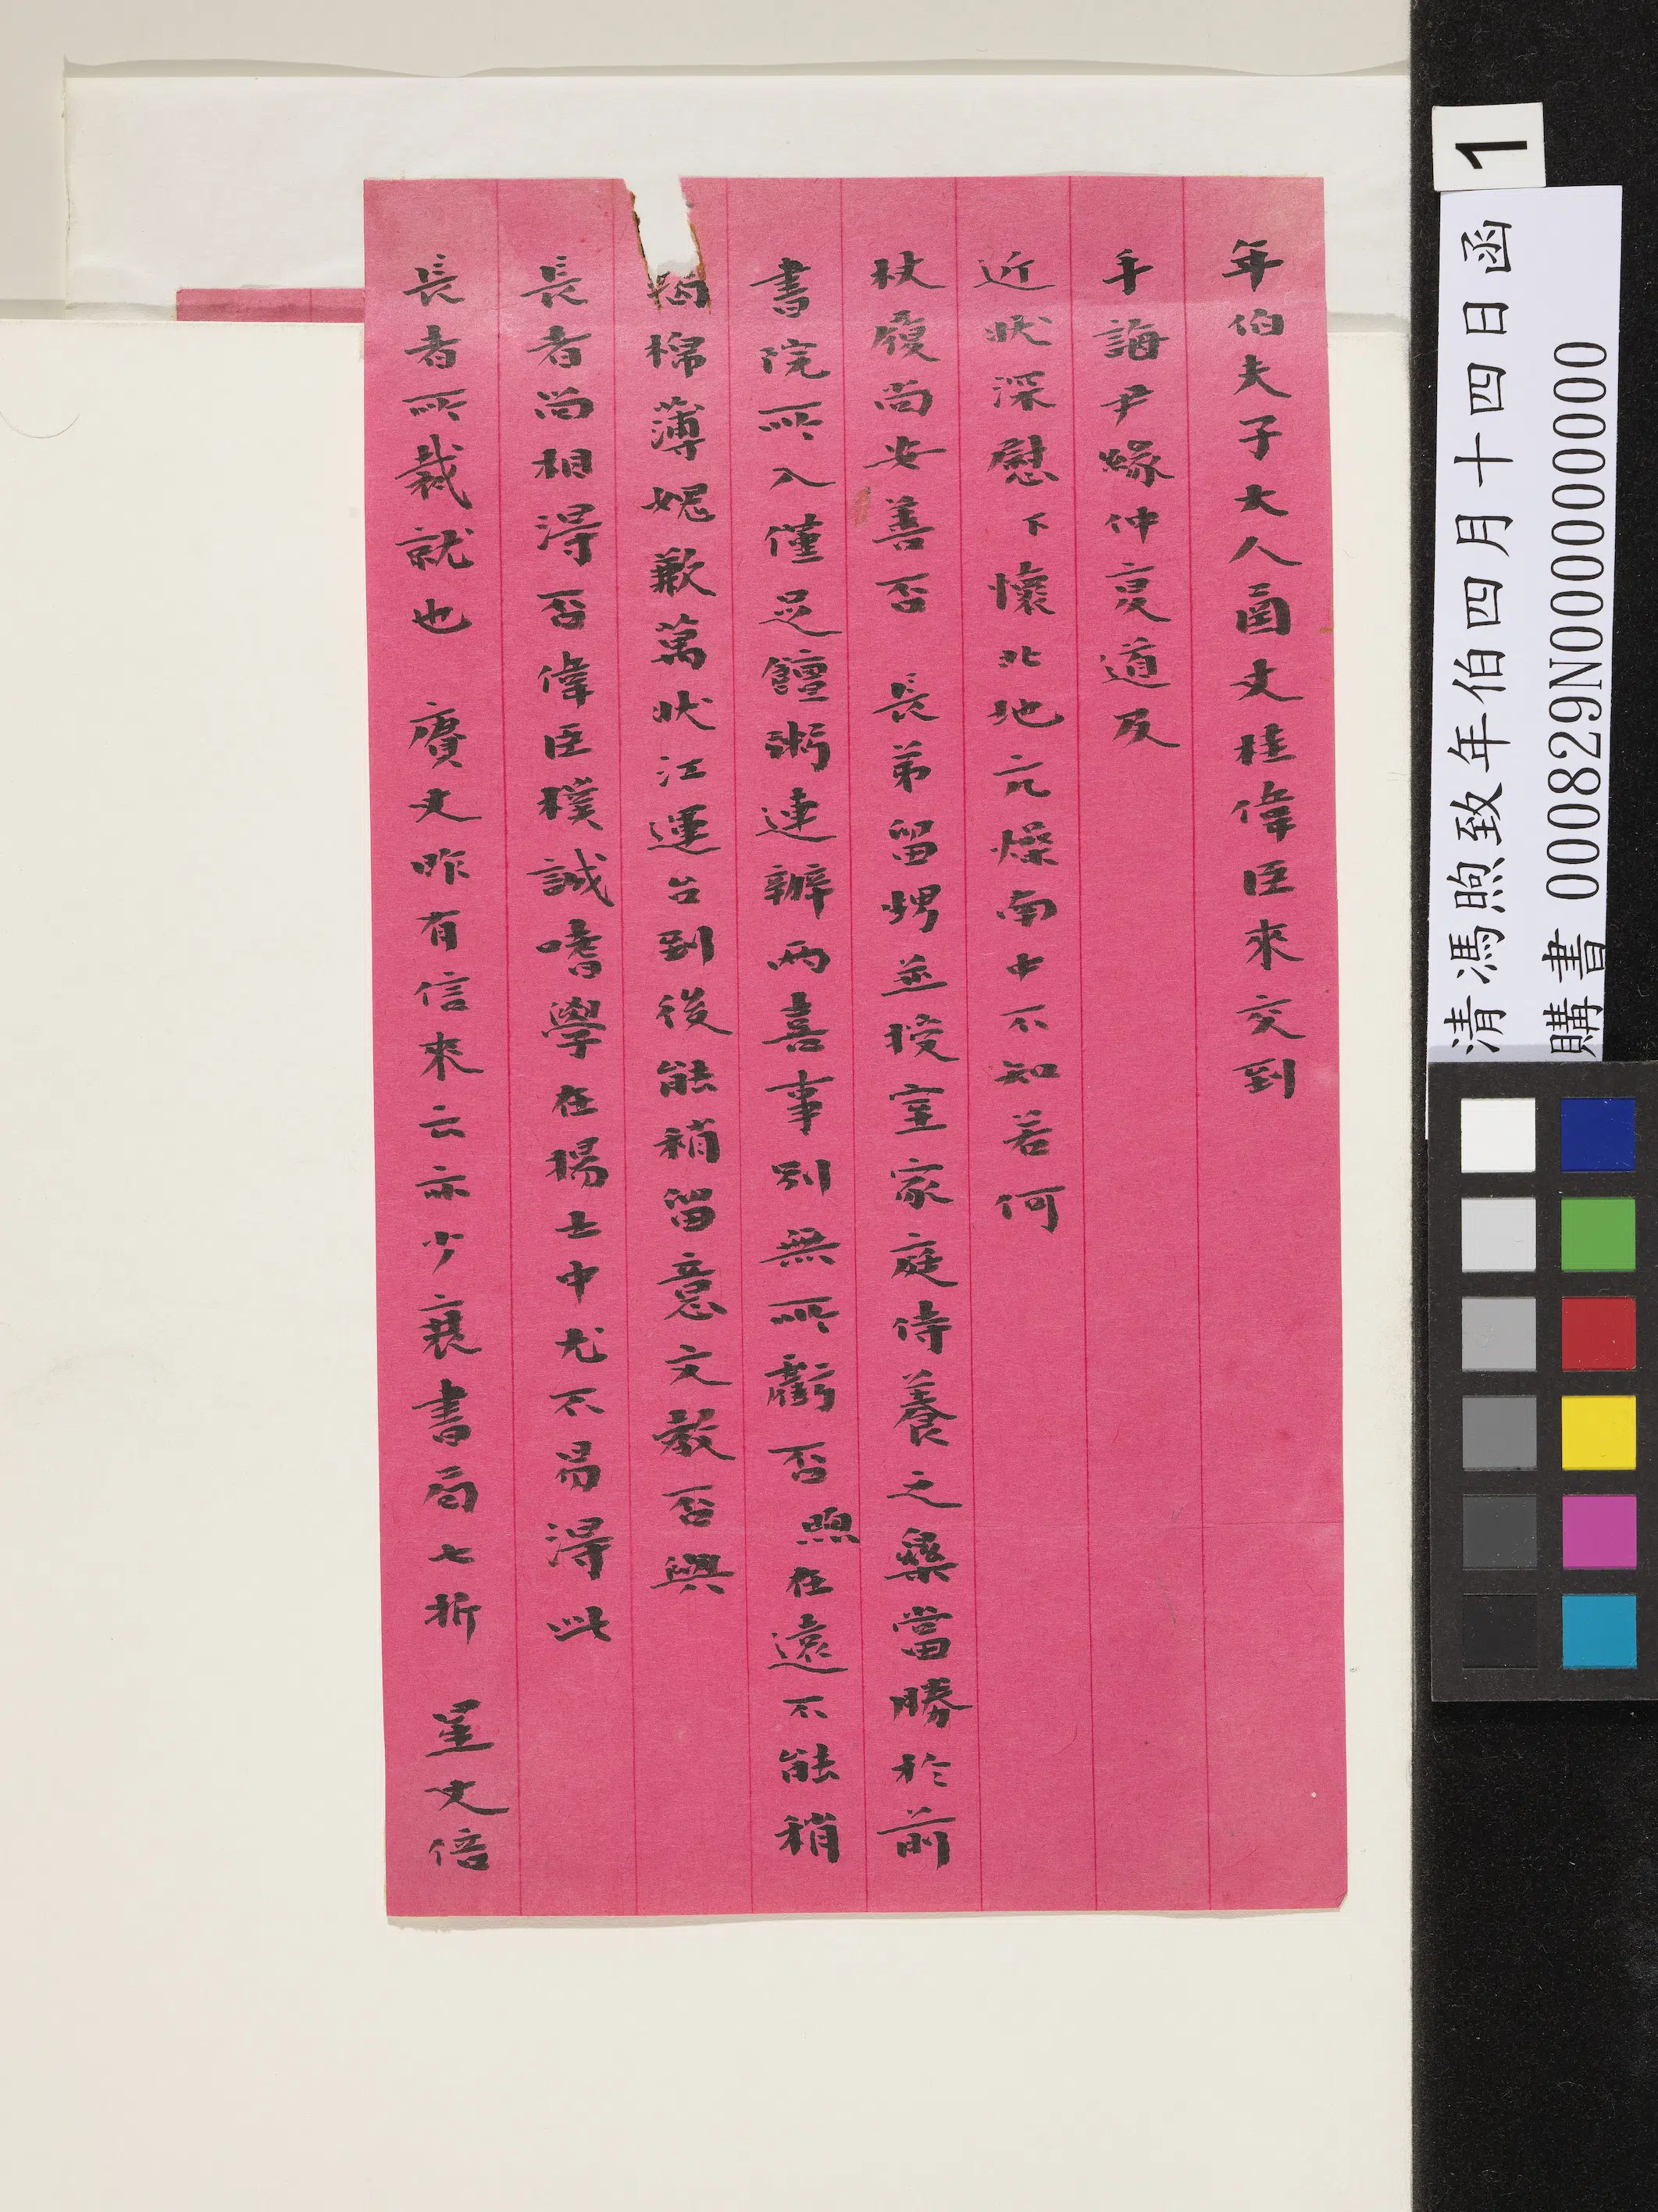 年伯夫子大人函丈桂偉臣來交到
手誨尹緣仲裒道及
近狀深慰下懷北地亢燥南中不知若何
杖履尚安善否 長弟留甥並授室家庭侍養之樂當勝於前
書院所入僅足饘粥連辦兩喜事別無所虧否煦在遠不能稍
竭棉薄媿歉萬狀江運台到後能稍留意文教否與
長者尚相得否偉臣樸誠嗜學在揚士中尤不易得此
長者所裁就也 賡丈昨有信來云亦少衰書局七折 星丈倍
1
清馮煦致年伯四月十四日函
購書 000829N000000000